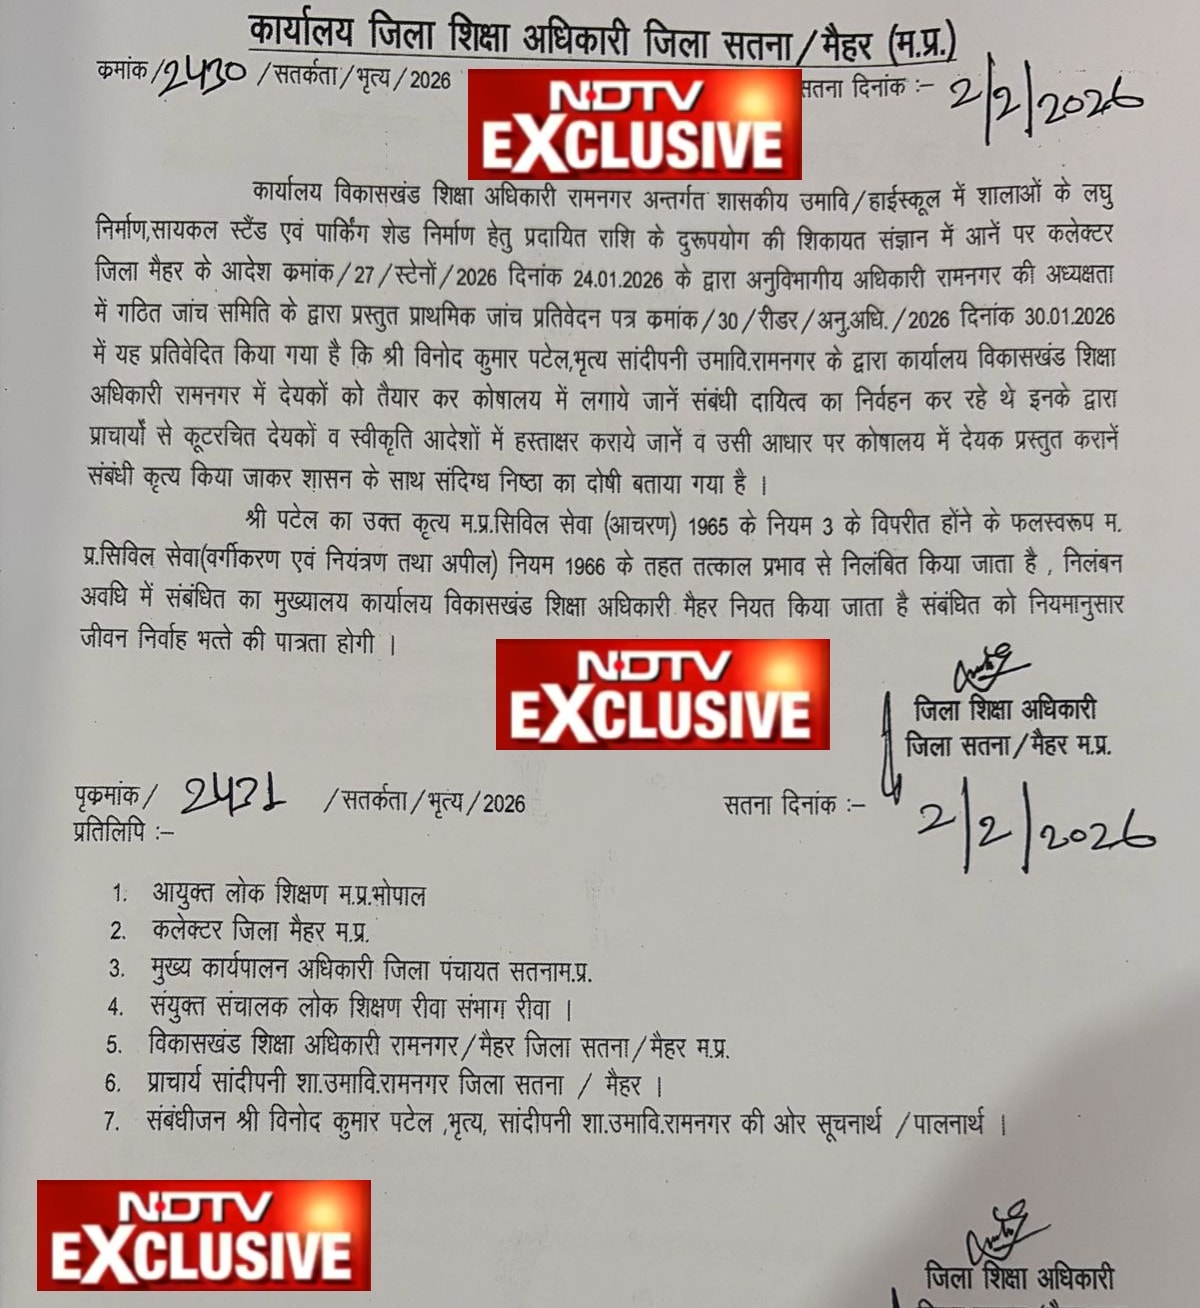 कार्यालय जिला शिक्षा अधिकारी जिला सतना/मैहर (म.प्र.)
क्रमांक/2430/सतर्कता/भृत्य/2026 सतना दिनांक :– 2/2/2026
NDTV
EXCLUSIVE
कार्यालय विकासखंड शिक्षा अधिकारी रामनगर अन्तर्गत शासकीय उमावि/हाईस्कूल में शालाओं के लघु
निर्माण,सायकल स्टैंड एवं पार्किंग शेड निर्माण हेतु प्रदायित राशि के दुरूपयोग की शिकायत संज्ञान में आनें पर कलेक्टर
जिला मैहर के आदेश क्रमांक/27/स्टेनों/2026 दिनांक 24.01.2026 के द्वारा अनुविभागीय अधिकारी रामनगर की अध्यक्षता
में गठित जांच समिति के द्वारा प्रस्तुत प्राथमिक जांच प्रतिवेदन पत्र कमांक/30/रीडर/अनु.अधि./2026 दिनांक 30.01.2026
में यह प्रतिवेदित किया गया है कि श्री विनोद कुमार पटेल,भृत्य सांदीपनी उमावि.रामनगर के द्वारा कार्यालय विकासखंड शिक्षा
अधिकारी रामनगर में देयकों को तैयार कर कोषालय में लगाये जानें संबंधी दायित्व का निर्वहन कर रहे थे इनके द्वारा
प्राचार्यों से कूटरचित देयकों व स्वीकृति आदेशों में हस्ताक्षर कराये जानें व उसी आधार पर कोषालय में देयक प्रस्तुत करानें
संबंधी कृत्य किया जाकर शासन के साथ संदिग्ध निष्ठा का दोषी बताया गया है ।
श्री पटेल का उक्त कृत्य म.प्र.सिविल सेवा (आचरण) 1965 के नियम 3 के विपरीत होंने के फलस्वरूप म.
प्र.सिविल सेवा(वर्गीकरण एवं नियंत्रण तथा अपील) नियम 1966 के तहत तत्काल प्रभाव से निलंबित किया जाता है , निलंबन
अवधि में संबंधित का मुख्यालय कार्यालय विकासखंड शिक्षा अधिकारी मैहर नियत किया जाता है संबंधित को नियमानुसार
जीवन निर्वाह भत्ते की पात्रता होगी ।
NDTV
EXCLUSIVE
जिला शिक्षा अधिकारी
जिला सतना/मैहर म.प्र.
पृक्रमांक/ 2431 /सतर्कता/भृत्य/2026 सतना दिनांक :– 2/2/2026
प्रतिलिपि :–
1. आयुक्त लोक शिक्षण म.प्र.भोपाल
2. कलेक्टर जिला मैहर म.प्र.
3. मुख्य कार्यपालन अधिकारी जिला पंचायत सतनाम.प्र.
4. संयुक्त संचालक लोक शिक्षण रीवा संभाग रीवा ।
5. विकासखंड शिक्षा अधिकारी रामनगर/मैहर जिला सतना/मैहर म.प्र.
6. प्राचार्य सांदीपनी शा.उमावि.रामनगर जिला सतना / मैहर ।
7. संबंधीजन श्री विनोद कुमार पटेल ,भृत्य, सांदीपनी शा.उमावि.रामनगर की ओर सूचनार्थ /पालनार्थ ।
NDTV
EXCLUSIVE
जिला शिक्षा अधिकारी